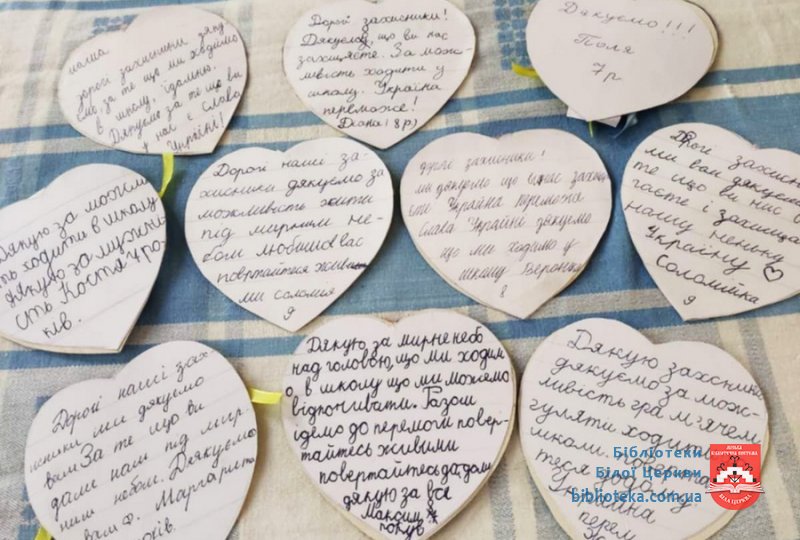 наша
дорогі захисники дяку
ємо за те що ми ходимо
в школу, їдальню.
Дякуємо за те що ви
у нас є Слава
Україні!
Дорогі захисники!
Дякуємо, що ви нас
захищаєте. За мож-
ливість ходити у
школу. Україна
переможе!
Діана (8 р)
Дякуємо!!!
Поля
7 р
Дякую за можли
ть ходити в школу
дякую за мужні
сть Костя 9 ро
ків.
Дорогі наші за-
хисники дякуємо за
можливість жити
під мирним не-
бом любимо вас
повертайтися живи
ми соломія
9
дорогі захисники!
ми дякуємо що
Україна переможе
Слава Україні дякуємо
що ми ходимо у
школу Вероніка
8
Дорогі захисни
ми вам дякуємо
те що ви нас
гаєте і захища
нашу неньку
Україну ♡
Соломійка
9
Дорогі наші зах-
исники ми дякуємо
вам За те що ви
даме нам під мир
ним небом. Дякуємо
вам Ф. Маргарита
ків.
Дякую за мирне небо
над головою, що ми ходим
о в школу що ми можемо
відпочивати. Разом
ідемо до перемоги повер-
тайтесь живими
повертайтесь додому
дякую за все
Максим 7
років
Дякую захсники
дякуємо за мож-
ливість гра м'ячем
гуляти ходити
школи. Поверта
теся додому
Україна
перем
Бібліотеки
Білої Церкви
biblioteka.com.ua
БІЛА ЦЕРКВА